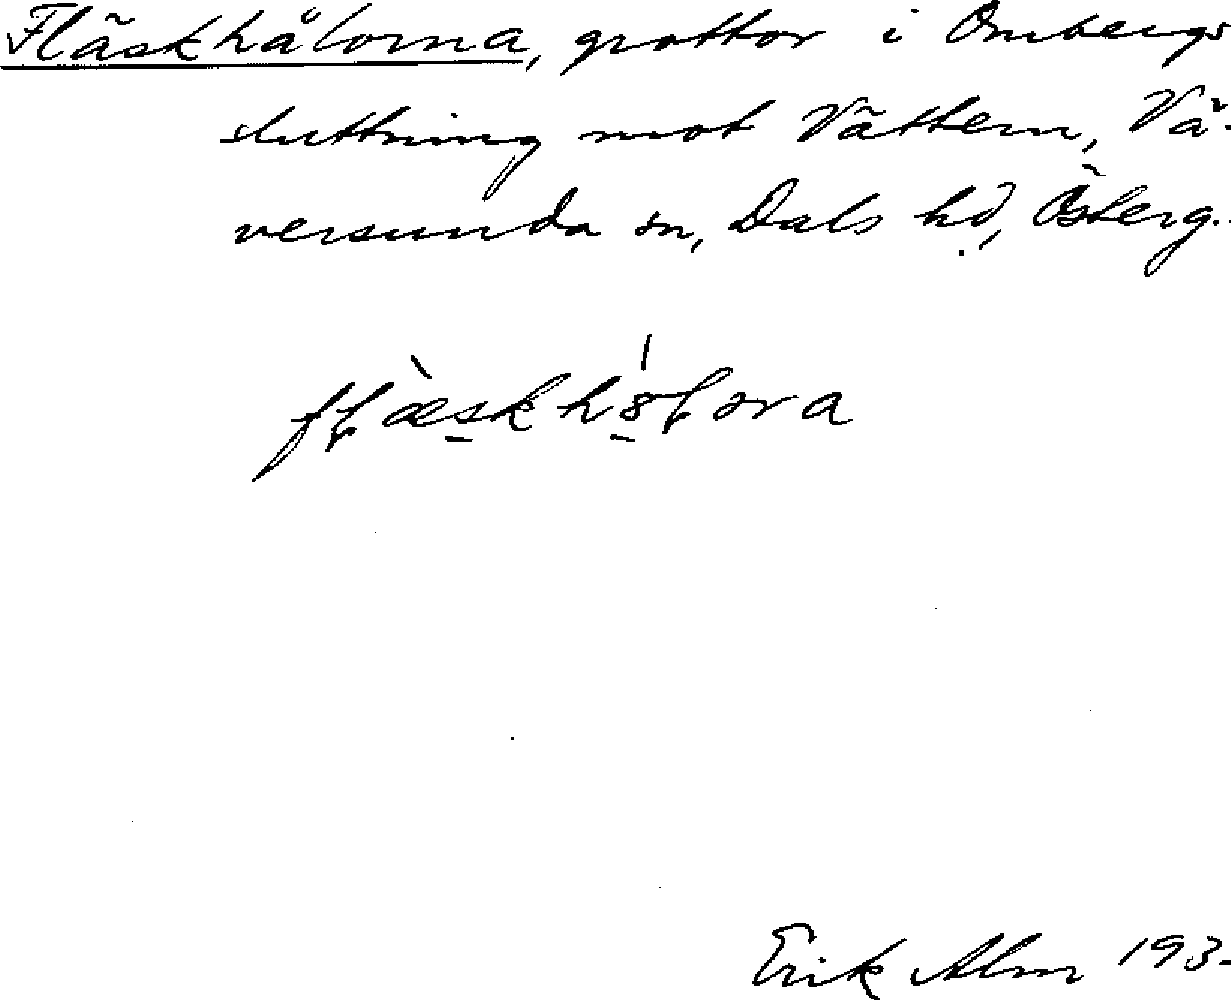 Fläskhålorna, grottor i Ombergs
sluttning mot Vättern, Vä-
versunda sn, Dals hd, Österg.
Erik Alm 193-